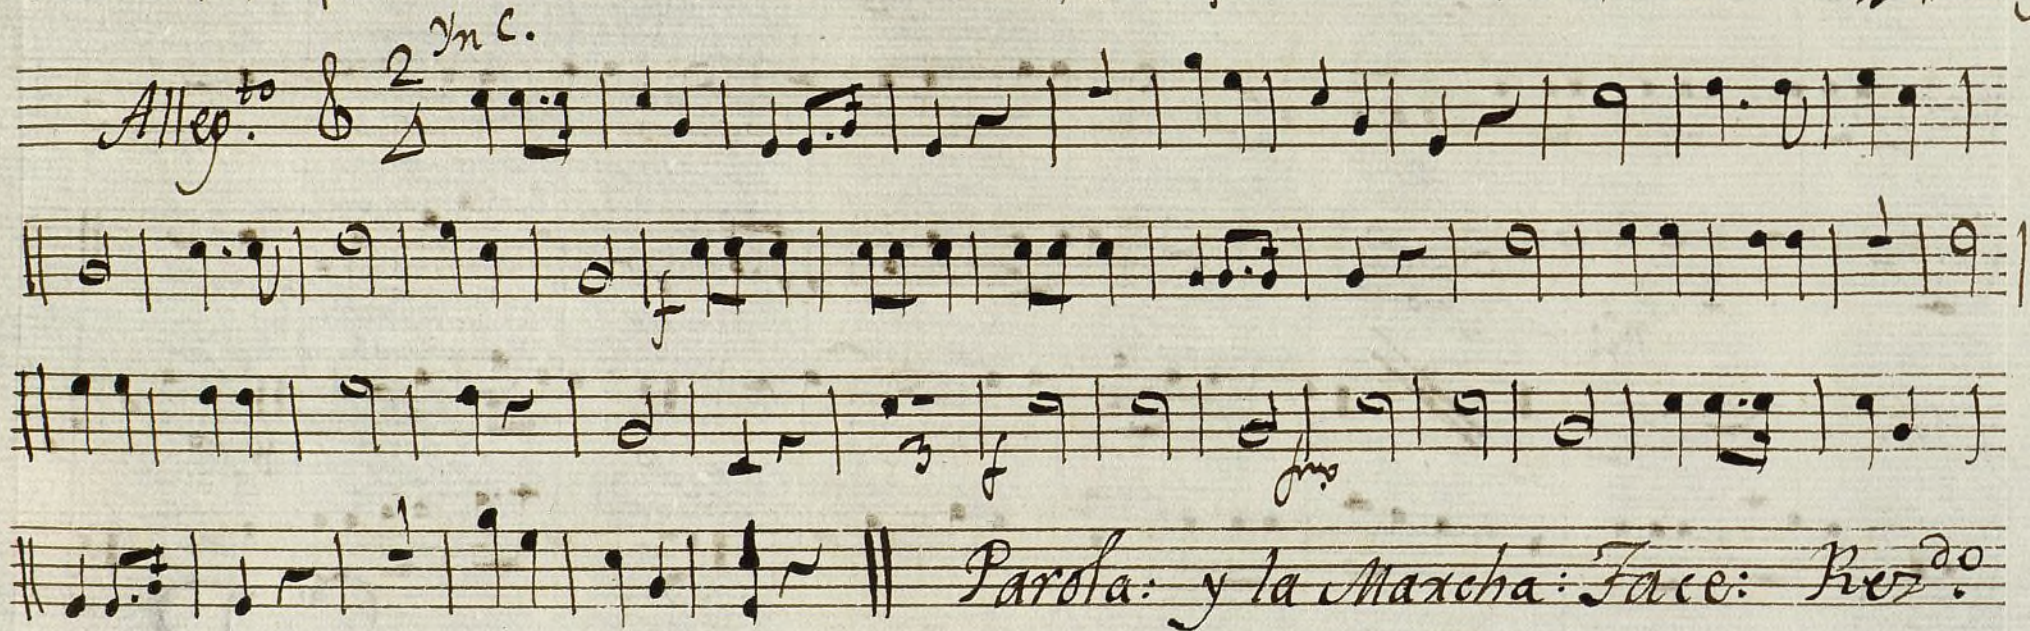 Yn C.
Alleg.to 2 4
f
1
3 f fmo
1
Parola: y la Marcha: Tace: Rez.do